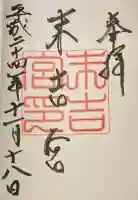 奉拝
末吉宮
末吉宮印
平成二十四年十一月十八日